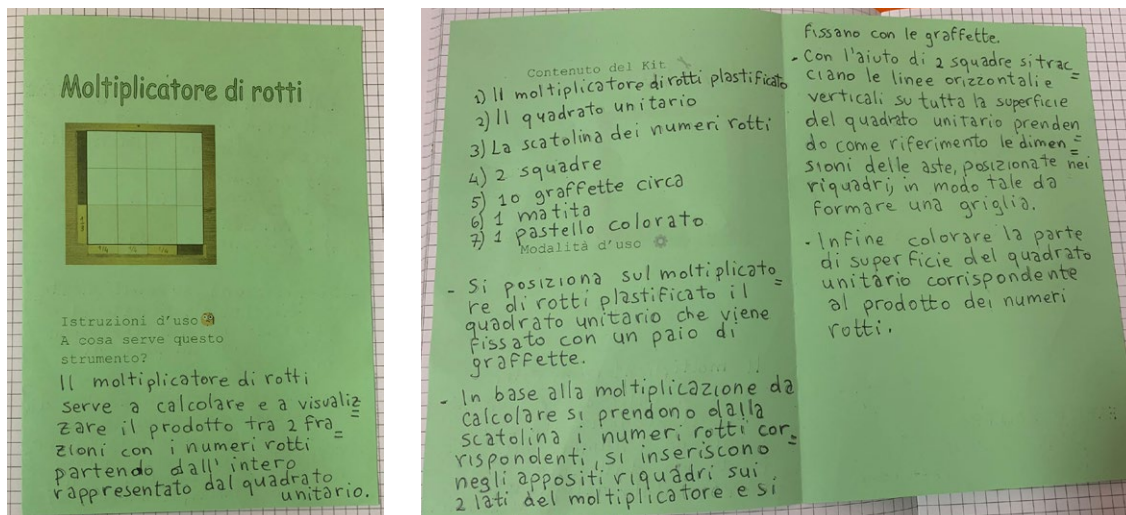 Moltiplicatore di rotti
1/4 1/4 1/4
Istruzioni d'uso
A cosa serve questo
strumento?
Il moltiplicatore di rotti
serve a calcolare e a visualiz=
zare il prodotto tra 2 fra=
zioni con i numeri rotti
partendo dall'intero
rappresentato dal quadrato
unitario.
Contenuto del Kit
1) Il moltiplicatore di rotti plastificato
2) Il quadrato unitario
3) La scatolina dei numeri rotti
4) 2 squadre
5) 10 graffette circa
6) 1 matita
7) 1 pastello colorato
Modalità d'uso
- Si posiziona sul moltiplicato=
re di rotti plastificato il
quadrato unitario che viene
fissato con un paio di
graffette.
- In base alla moltiplicazione da
calcolare si prendono dalla
scatolina i numeri rotti cor=
rispondenti, si inseriscono
negli appositi riquadri sui
2 lati del moltiplicatore e si
fissano con le graffette.
- Con l'aiuto di 2 squadre si trac=
ciano le linee orizzontali e
verticali su tutta la superficie
del quadrato unitario prenden
do come riferimento le dimen=
sioni delle aste, posizionate nei
riquadri, in modo tale da
formare una griglia.
- Infine colorare la parte
di superficie del quadrato
unitario corrispondente
al prodotto dei numeri
rotti.